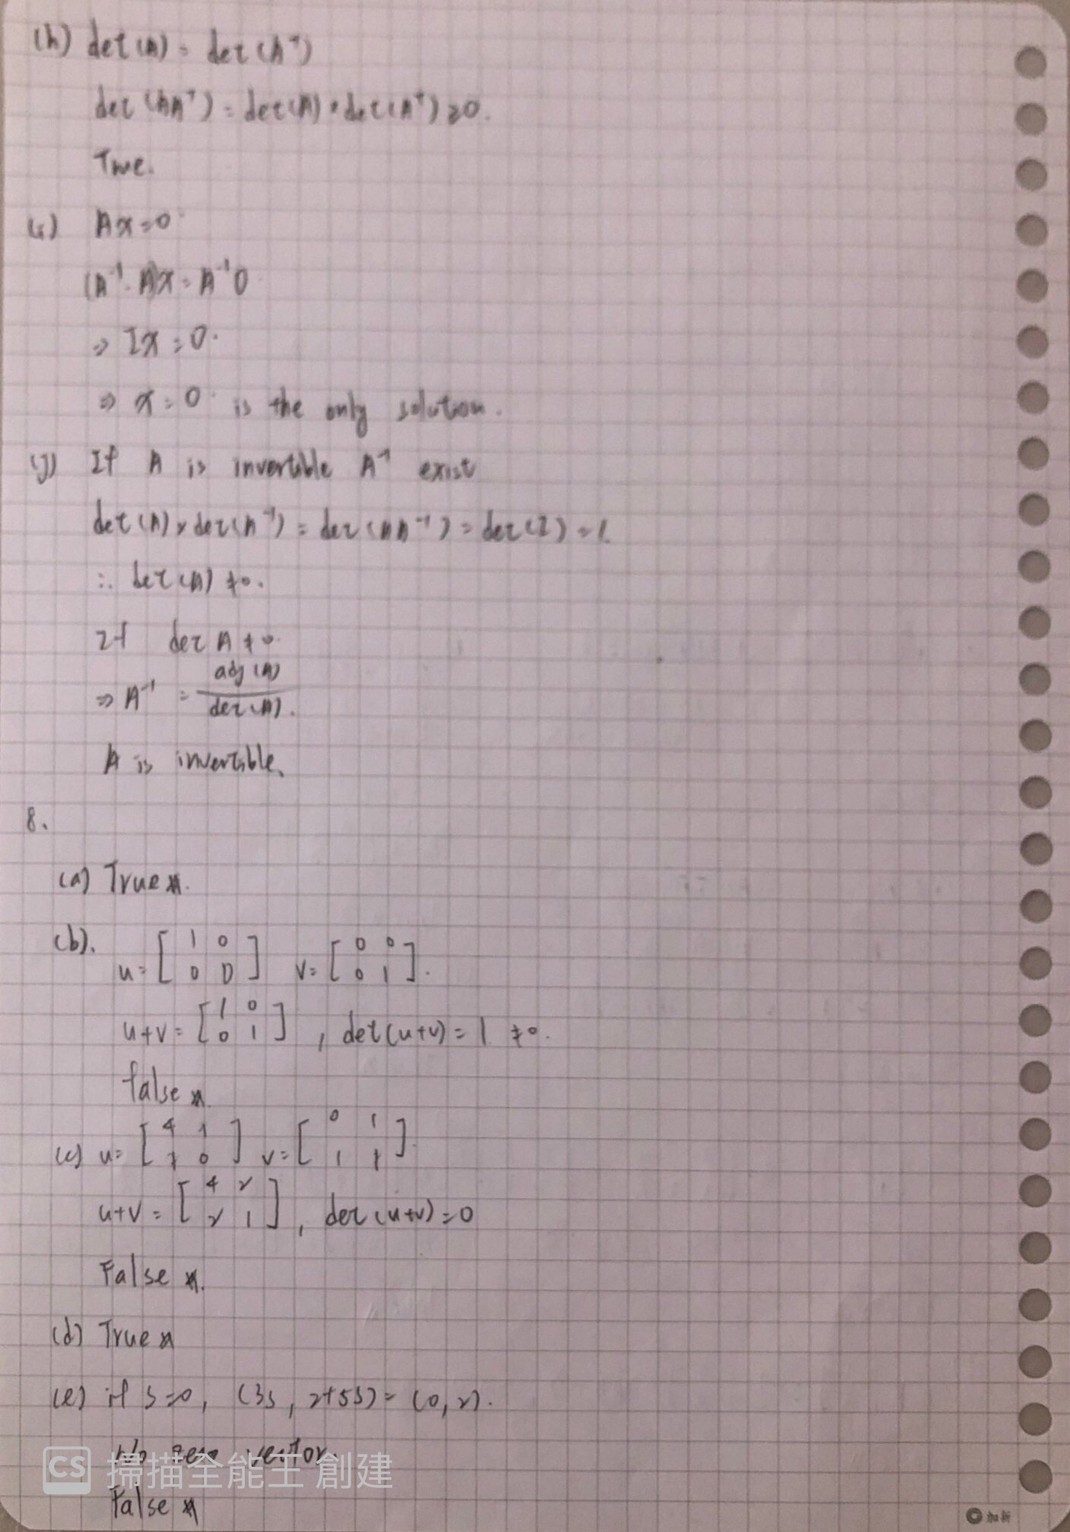 (h) det(A) = det(A^T)
det(AA^T) = det(A) · det(A^T) ≥ 0.
True.
(i) Ax=0
(A^-1 · A)x = A^-1 0
⇒ Ix = 0.
⇒ x = 0 is the only solution.
(j) If A is invertible A^-1 exist
det(A) × det(A^-1) = det(AA^-1) = det(I) = 1.
∴ det(A) ≠ 0.
If det A ≠ 0.
⇒ A^-1 = adj(A) / det(A).
A is invertible.
8.
(a) True.
(b). u = [1 0; 0 0] v = [0 0; 0 1].
u+v = [1 0; 0 1], det(u+v) = 1 ≠ 0.
false
(c) u = [4 1; 1 0] v = [0 1; 1 1].
u+v = [4 2; 2 1], det(u+v) = 0
False.
(d) True
(e) if s=0, (3s, 2+5s) = (0, 2).
No zero vector.
False
CS 掃描全能王 創建
加新